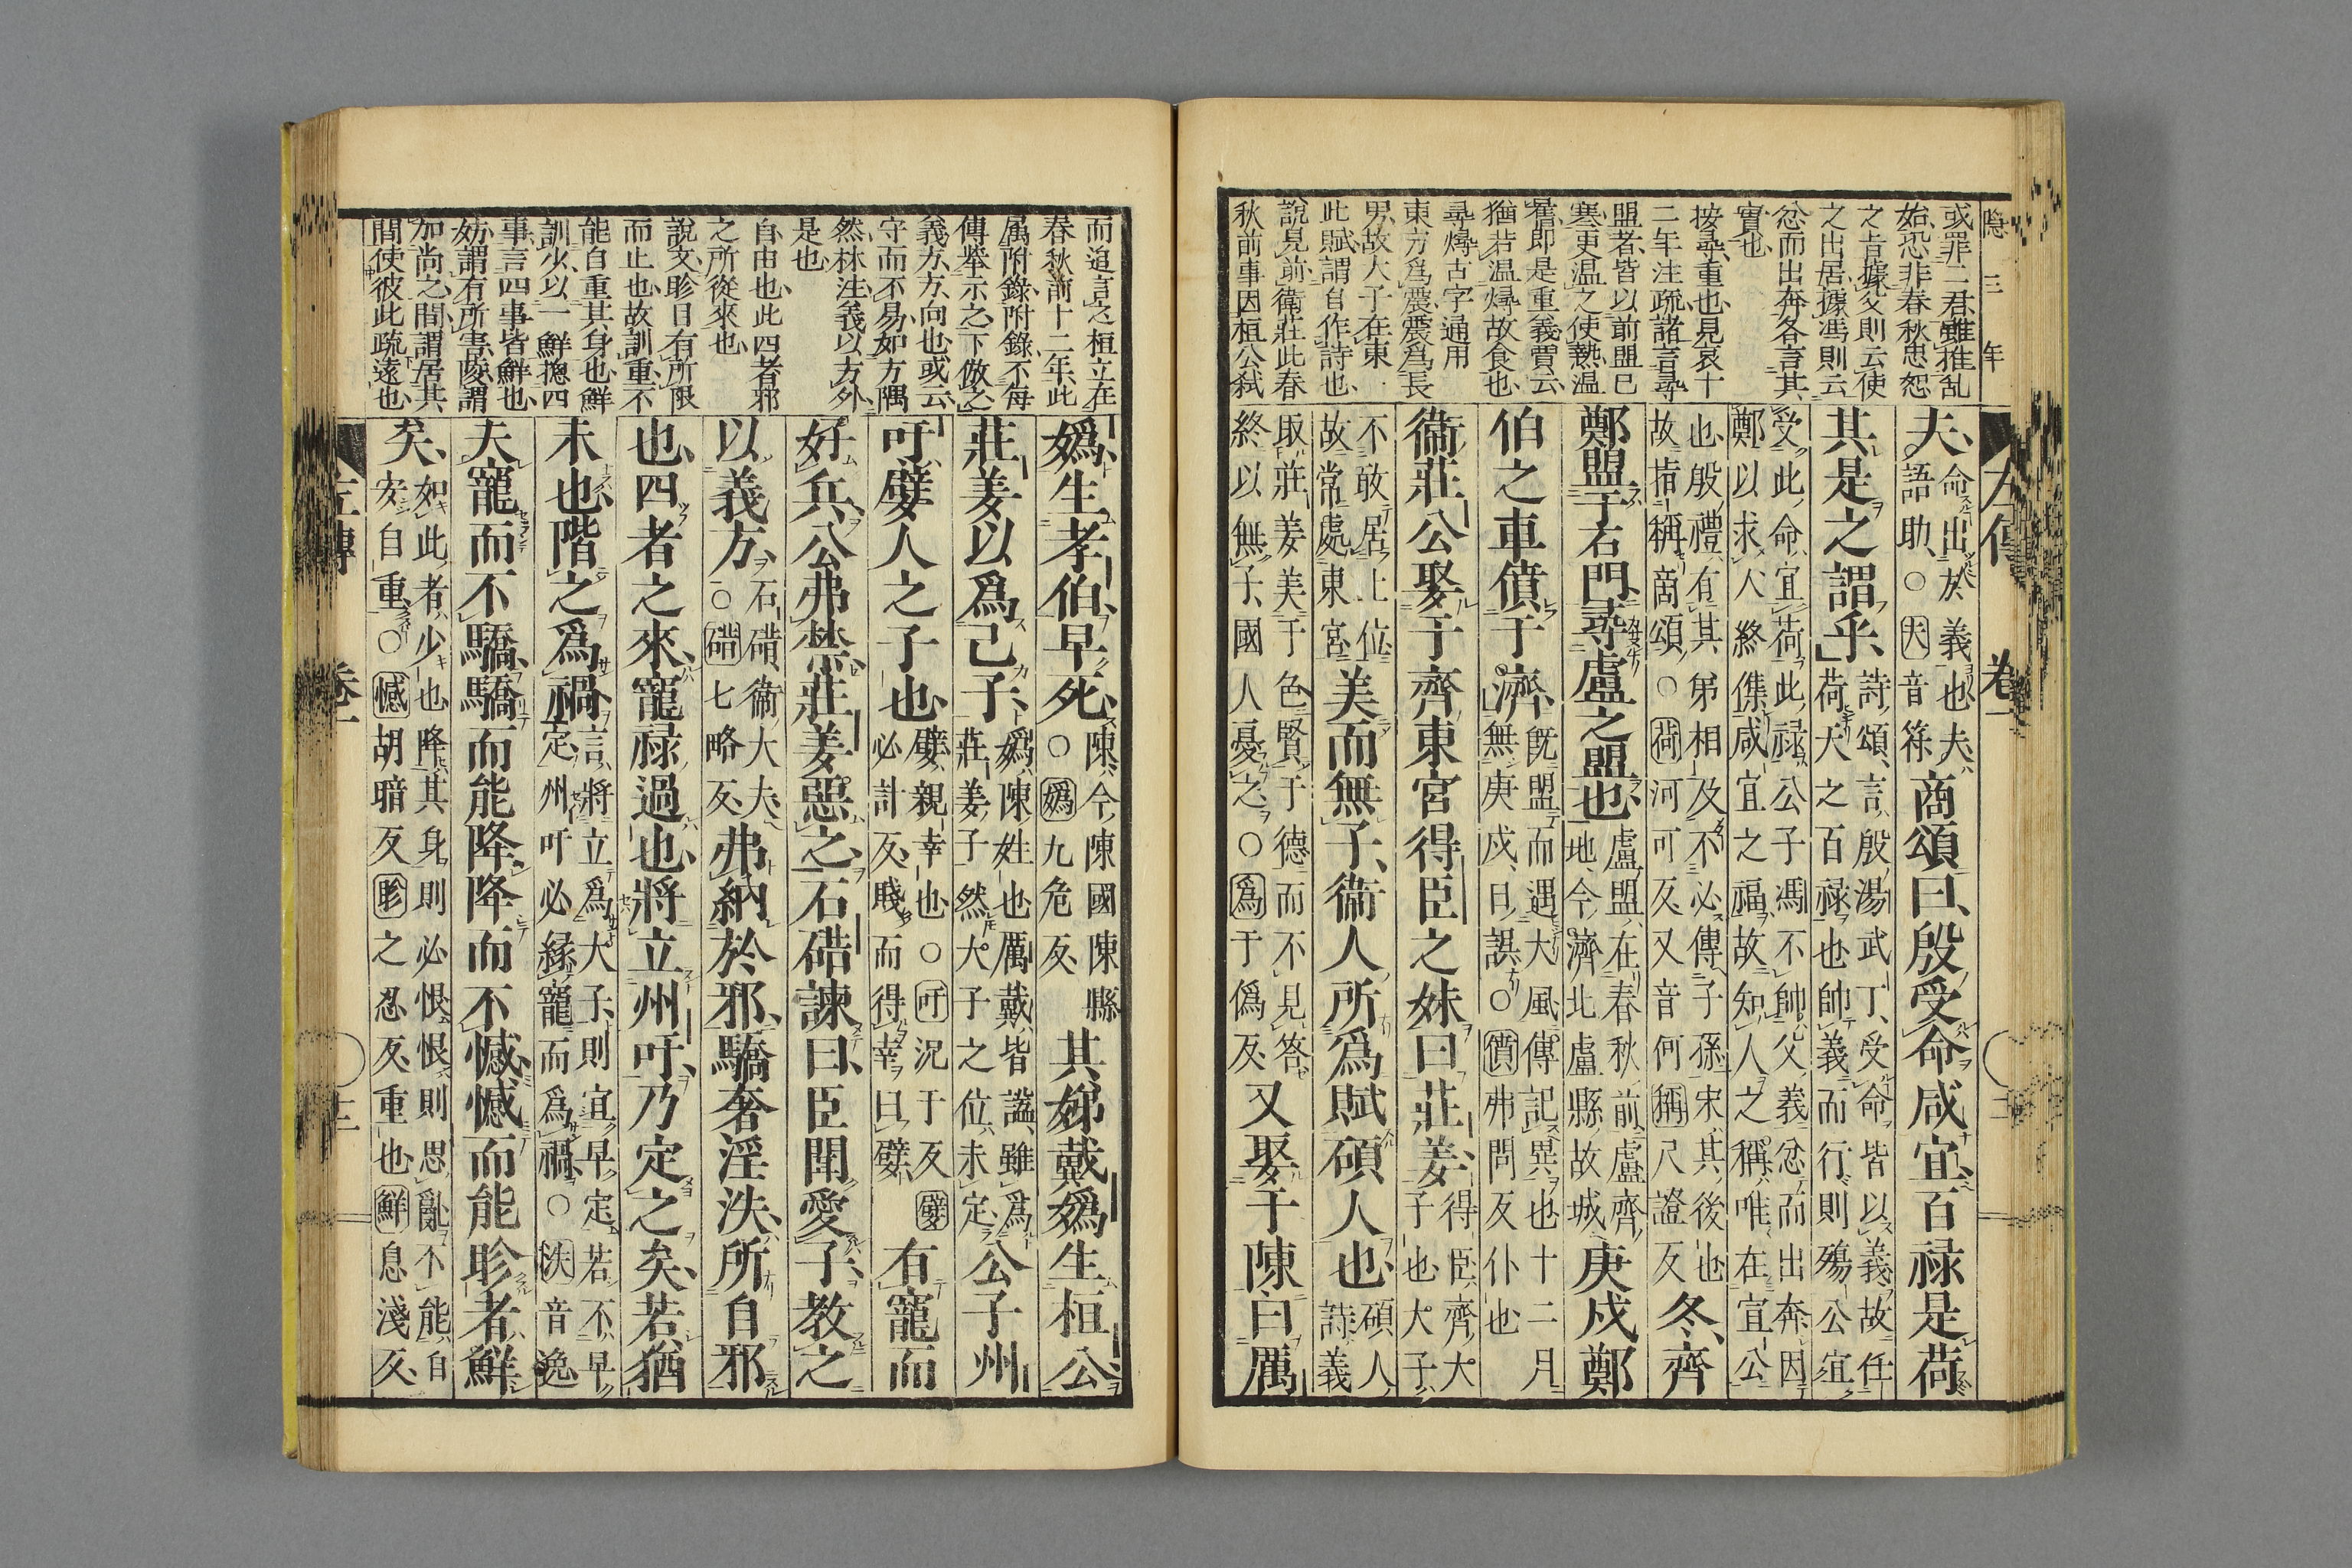 隱三年
左傳 卷一
或罪二君雖推乱
始恐非春秋忠恕
之旨據父則云使
之出居據馮則云
忿而出奔各言其
實也
按尋重也見哀十
二年注疏諸言尋
盟者皆以前盟已
寒更温之使熱温
舊即是重義賈云
猶若温燖故食也
尋燖古字通用
東方爲震震爲長
男故大子在東
此賦謂自作詩也
說見前衛莊此春
秋前事因桓公弑
夫、命出於義也夫、語助、○夫音符商頌曰、殷受命咸宜、百祿是荷
其是之謂乎、詩頌、言殷湯武丁、受命皆以義、故任荷天之百祿也帥義而行、則殤公宜
受此命、宜荷此祿、公子馮不帥父義、忿而出奔、因鄭以求入、終傷咸宜之福、故知人之稱、唯在宣公
也殷禮、有其弟相及、不必傳子孫、宋其後也故指稱商頌○荷河可反又音何稱尺證反冬、齊
鄭盟于石門、尋盧之盟也、盧盟、在春秋前、盧齊地、今濟北盧縣故城庚戌鄭
伯之車僨于濟、既盟而遇大風、傳記異也十二月無庚戌、日誤○僨弗問反仆也
衞莊公娶于齊東宮得臣之妹曰莊姜、得臣、齊大子也、大子
不敢居上位、故常處東宮美而無子、衞人所爲賦碩人也、碩人詩、義
取莊姜美于色、賢于德、而不見答、終以無子、國人憂之、○爲于僞反、又娶于陳曰厲
而追言之桓立在
春秋前十二年、此
属附錄附錄不毎
傳舉示之下倣之
義方方向也、或云
守而不易如方隅
然林注義以方外
是也
自由也此四者邪
之所從來也
說文眕目有所限
而止也故訓重不
能自重其身也鮮
訓少、以一鮮摠四
事言四事皆鮮也
妨謂有所害、陵謂
加尚之、間謂居其
間使彼此疏遠也
嬀、生孝伯、早死、陳、今陳國陳縣○嬀九危反其娣戴嬀生桓公
莊姜以爲己子、嬀、陳姓也厲戴、皆謚、雖爲莊姜子、然大子之位、未定公子州
吁、嬖人之子也、嬖、親幸也○吁況于反嬖必計反、賤而得幸曰嬖有寵而
好兵、公弗禁、莊姜惡之、石碏諫曰、臣聞愛子、教之
以義方、石碏、衞大夫○碏七略反、弗納於邪、驕奢淫泆、所自邪
也、四者之來、寵祿過也、將立州吁、乃定之矣、若猶
未也、階之爲禍、言將立爲大子、則宜早定、若不早定、州吁必緣寵而爲禍○泆音逸
夫寵而不驕、驕而能降、降而不憾、憾而能眕者、鮮
矣、如此者、少也降其身則必恨、恨則思亂、不能自安自重、○憾胡暗反眕之忍反、重也鮮息淺反、
左傳 卷一